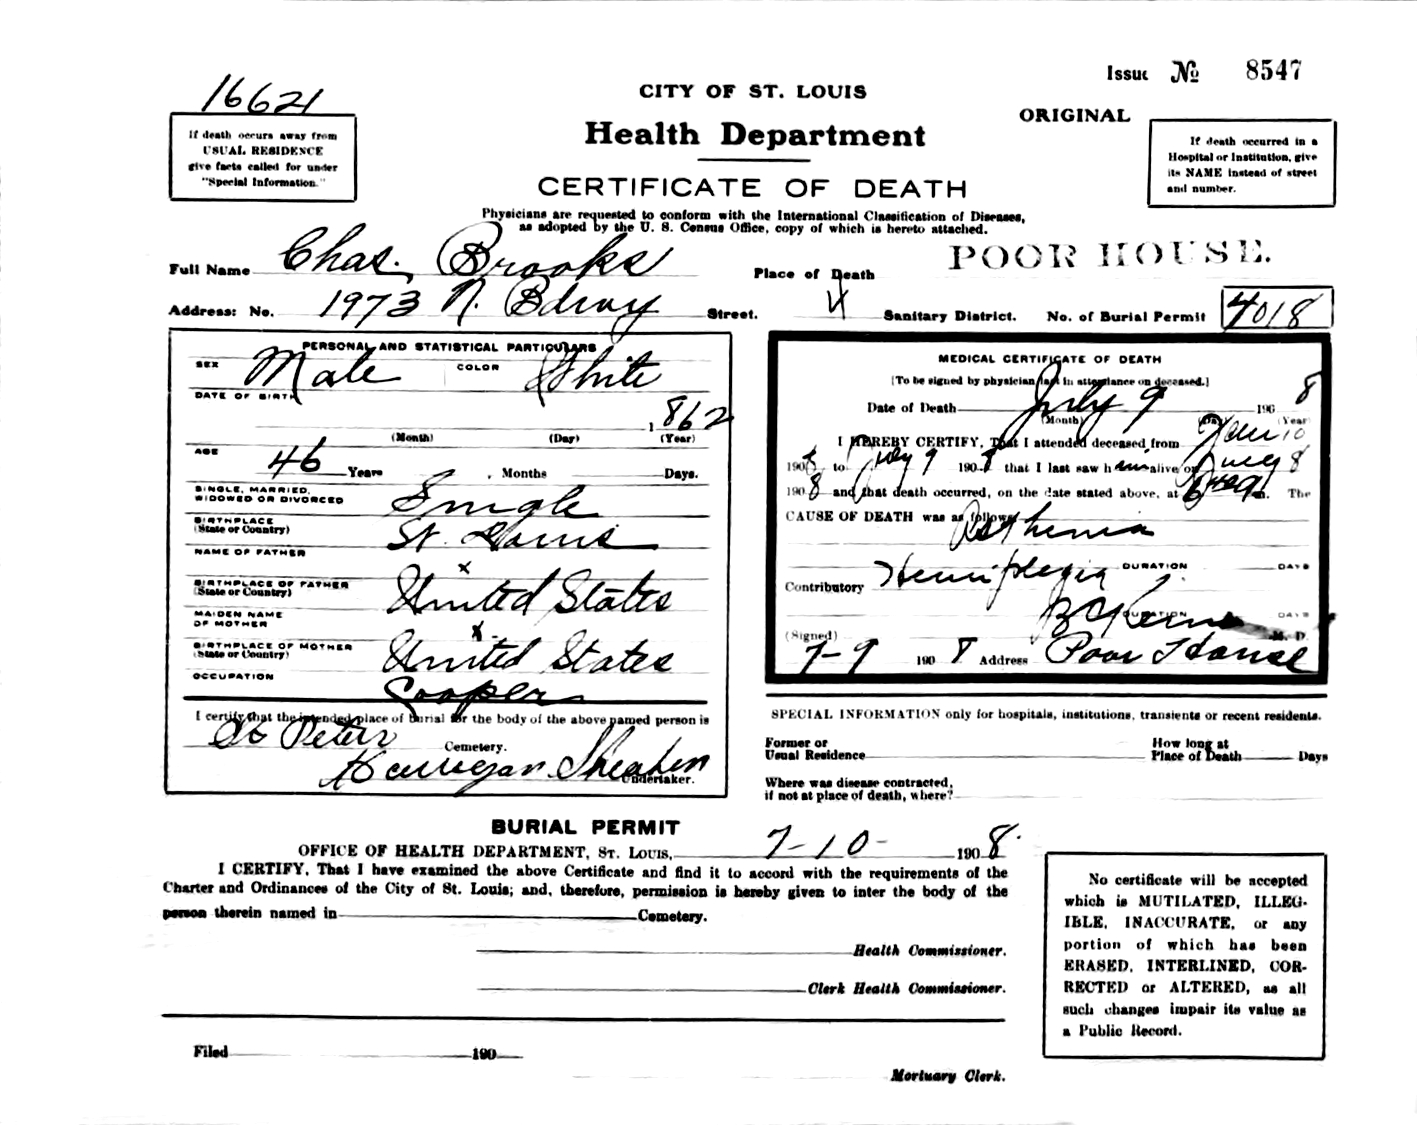 16621
Issue № 8547
CITY OF ST. LOUIS
ORIGINAL
Health Department
If death occurs away from
USUAL RESIDENCE
give facts called for under
"Special Information."
If death occurred in a
Hospital or Institution, give
its NAME instead of street
and number.
CERTIFICATE OF DEATH
Physicians are requested to conform with the International Classification of Diseases,
as adopted by the U. S. Census Office, copy of which is hereto attached.
Full Name Chas. Brooks
Place of Death POOR HOUSE.
Address: No. 1973 N. Bdway Street.
4 Sanitary District. No. of Burial Permit 4018
PERSONAL AND STATISTICAL PARTICULARS
SEX Male COLOR White
DATE OF BIRTH
1862
(Month) (Day) (Year)
AGE 46 Years , Months Days.
SINGLE, MARRIED,
WIDOWED OR DIVORCED Single
BIRTHPLACE
(State or Country) St. Louis
NAME OF FATHER x
BIRTHPLACE OF FATHER
(State or Country) United States
MAIDEN NAME
OF MOTHER x
BIRTHPLACE OF MOTHER
(State or Country) United States
OCCUPATION Cooper
I certify that the intended place of burial for the body of the above named person is
St Peters Cemetery.
Undertaker.
MEDICAL CERTIFICATE OF DEATH
[To be signed by physician last in attendance on deceased.]
Date of Death July 9 1908
(Month) (Day) (Year)
I HEREBY CERTIFY, That I attended deceased from
1908 to July 9 1908 that I last saw him alive on July 8
1908 and that death occurred, on the date stated above, at m. The
CAUSE OF DEATH was as follows:
Asthenia
DURATION DAYS
Contributory Hemiplegia
DURATION DAYS
(Signed) M. D.
7-9 1908 Address Poor House
SPECIAL INFORMATION only for hospitals, institutions, transients or recent residents.
Former or
Usual Residence
How long at
Place of Death Days
Where was disease contracted,
if not at place of death, where?
BURIAL PERMIT
OFFICE OF HEALTH DEPARTMENT, ST. LOUIS, 7-10- 1908.
I CERTIFY, That I have examined the above Certificate and find it to accord with the requirements of the
Charter and Ordinances of the City of St. Louis; and, therefore, permission is hereby given to inter the body of the
person therein named in Cemetery.
Health Commissioner.
Clerk Health Commissioner.
Filed 190
Mortuary Clerk.
No certificate will be accepted
which is MUTILATED, ILLEG-
IBLE, INACCURATE, or any
portion of which has been
ERASED, INTERLINED, COR-
RECTED or ALTERED, as all
such changes impair its value as
a Public Record.